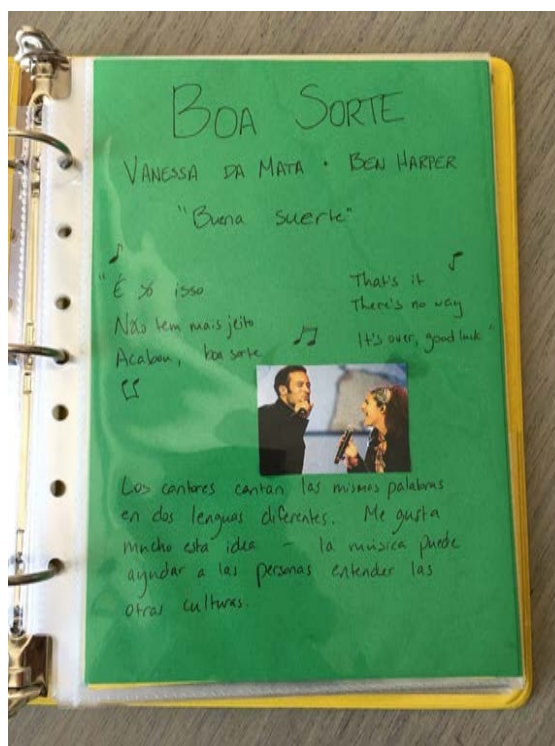 BOA SORTE
VANESSA DA MATA • BEN HARPER
"Buena suerte"
"É só isso
Não tem mais jeito
Acabou, boa sorte
That's it
There's no way
It's over, good luck"
Los cantores cantan las mismas palabras
en dos lenguas diferentes. Me gusta
mucho esta idea – la música puede
ayudar a las personas entender las
otras culturas.